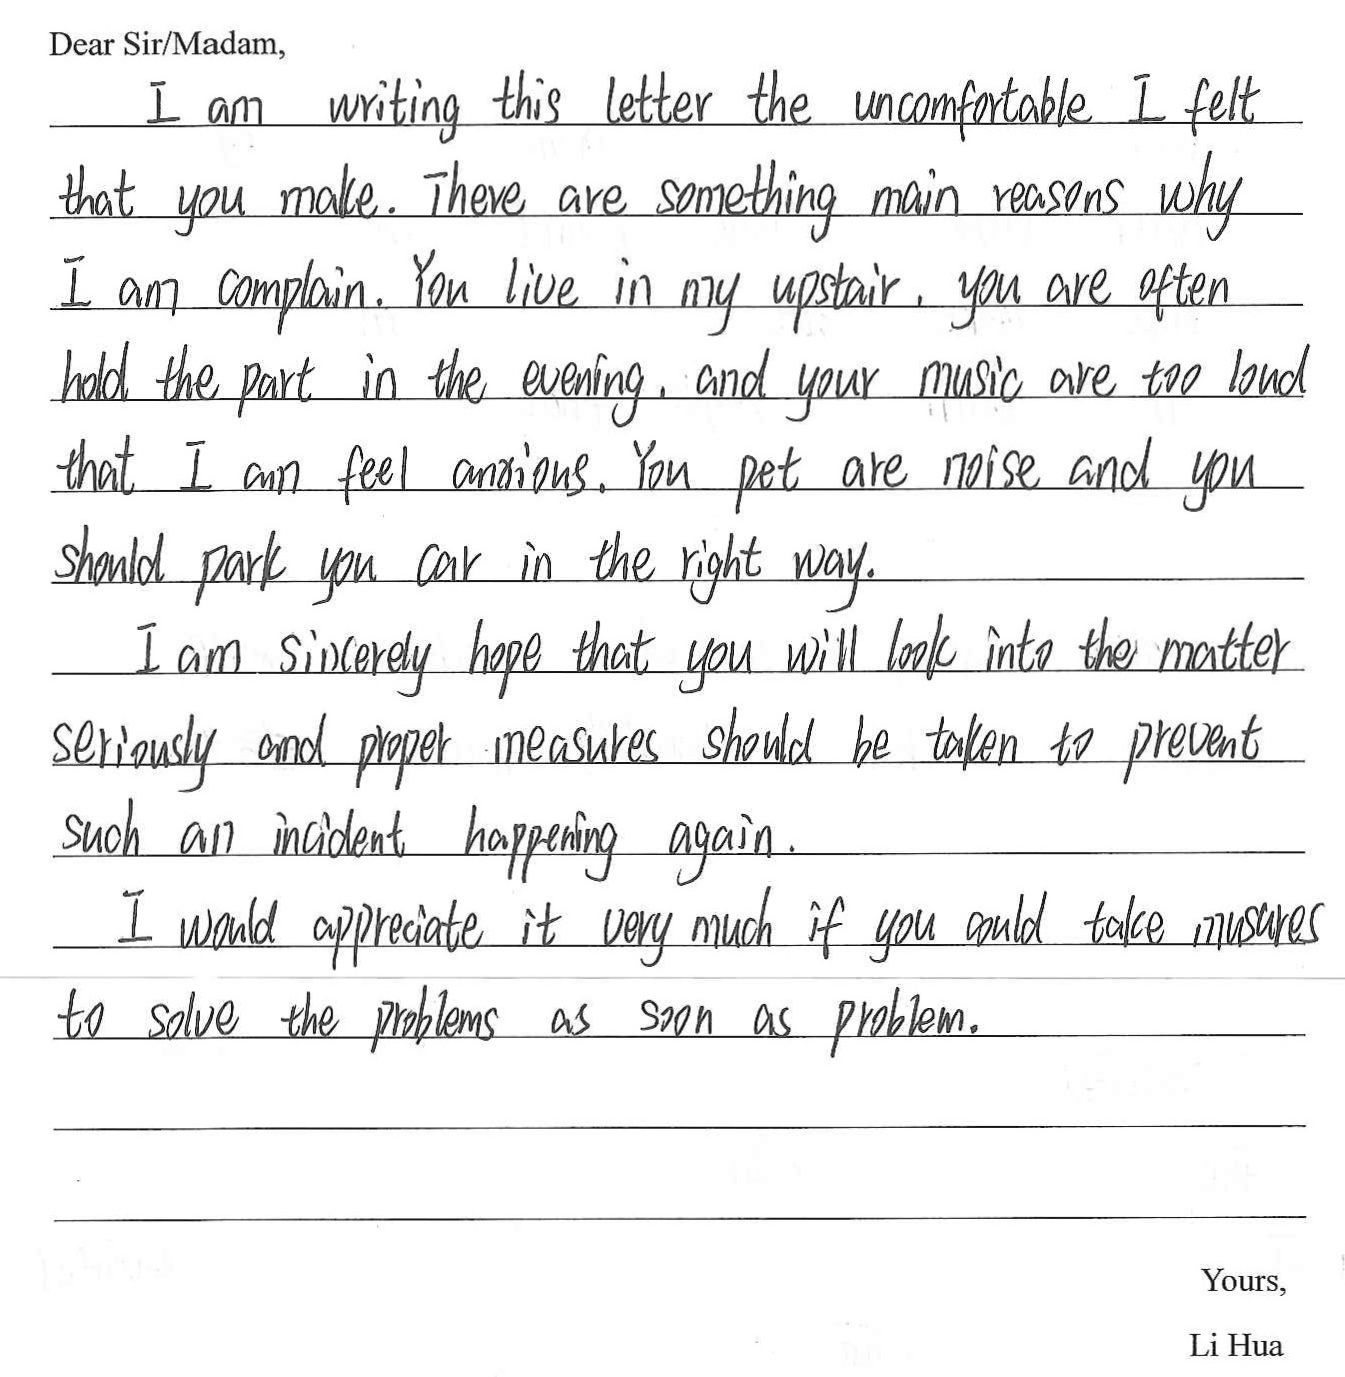 Dear Sir/Madam,
I am writing this letter the uncomfortable I felt
that you make. There are something main reasons why
I am complain. You live in my upstair, you are often
hold the part in the evening, and your music are too loud
that I am feel anxious. You pet are noise and you
should park you car in the right way.
I am sincerely hope that you will look into the matter
seriously and proper measures should be taken to prevent
such an incident happening again.
I would appreciate it very much if you could take musures
to solve the problems as soon as problem.
Yours,
Li Hua